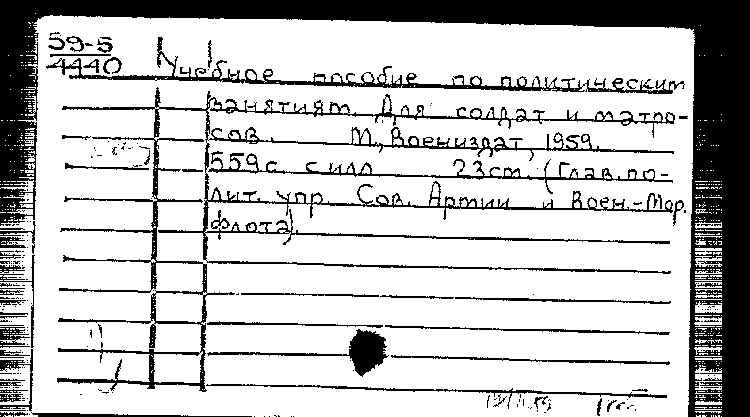 59-5
4440
Учебное пособие по политическим
занятиям. Для солдат и матро-
сов. М., Воениздат, 1959.
559 с. с илл 23 см. (Глав. по-
лит. упр Сов. Армии и Воен-Мор.
флота).